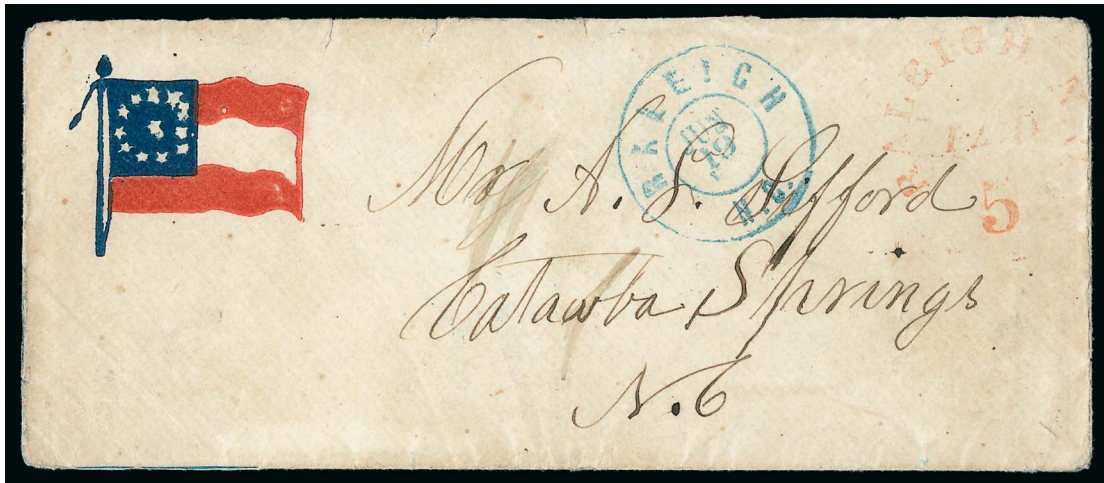 RALEIGH N.C.
JUN
19
RALEIGH
PAID
5
Mrs A. S. Lifford
Catawba Springs
N.C